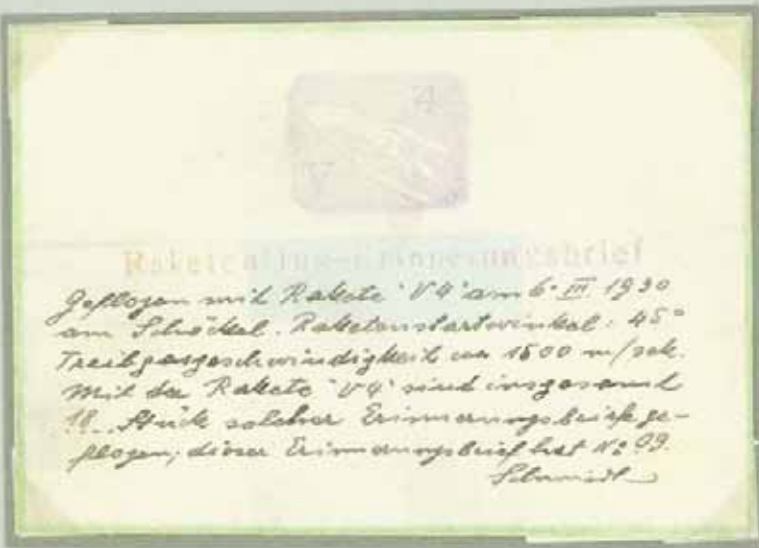 V 4
Raketenflug-Erinnerungsbrief
Geflogen mit Rakete "V4" am 6. III. 1930
am Schöckel. Raketenstartwinkel: 45°
Treibgasgeschwindigkeit ca 1500 m/sek.
Mit der Rakete "V4" sind insgesamt
Stück solcher Erinnerungsbriefe ge-
flogen; dieser Erinnerungsbrief hat No 09.
Schmiedl